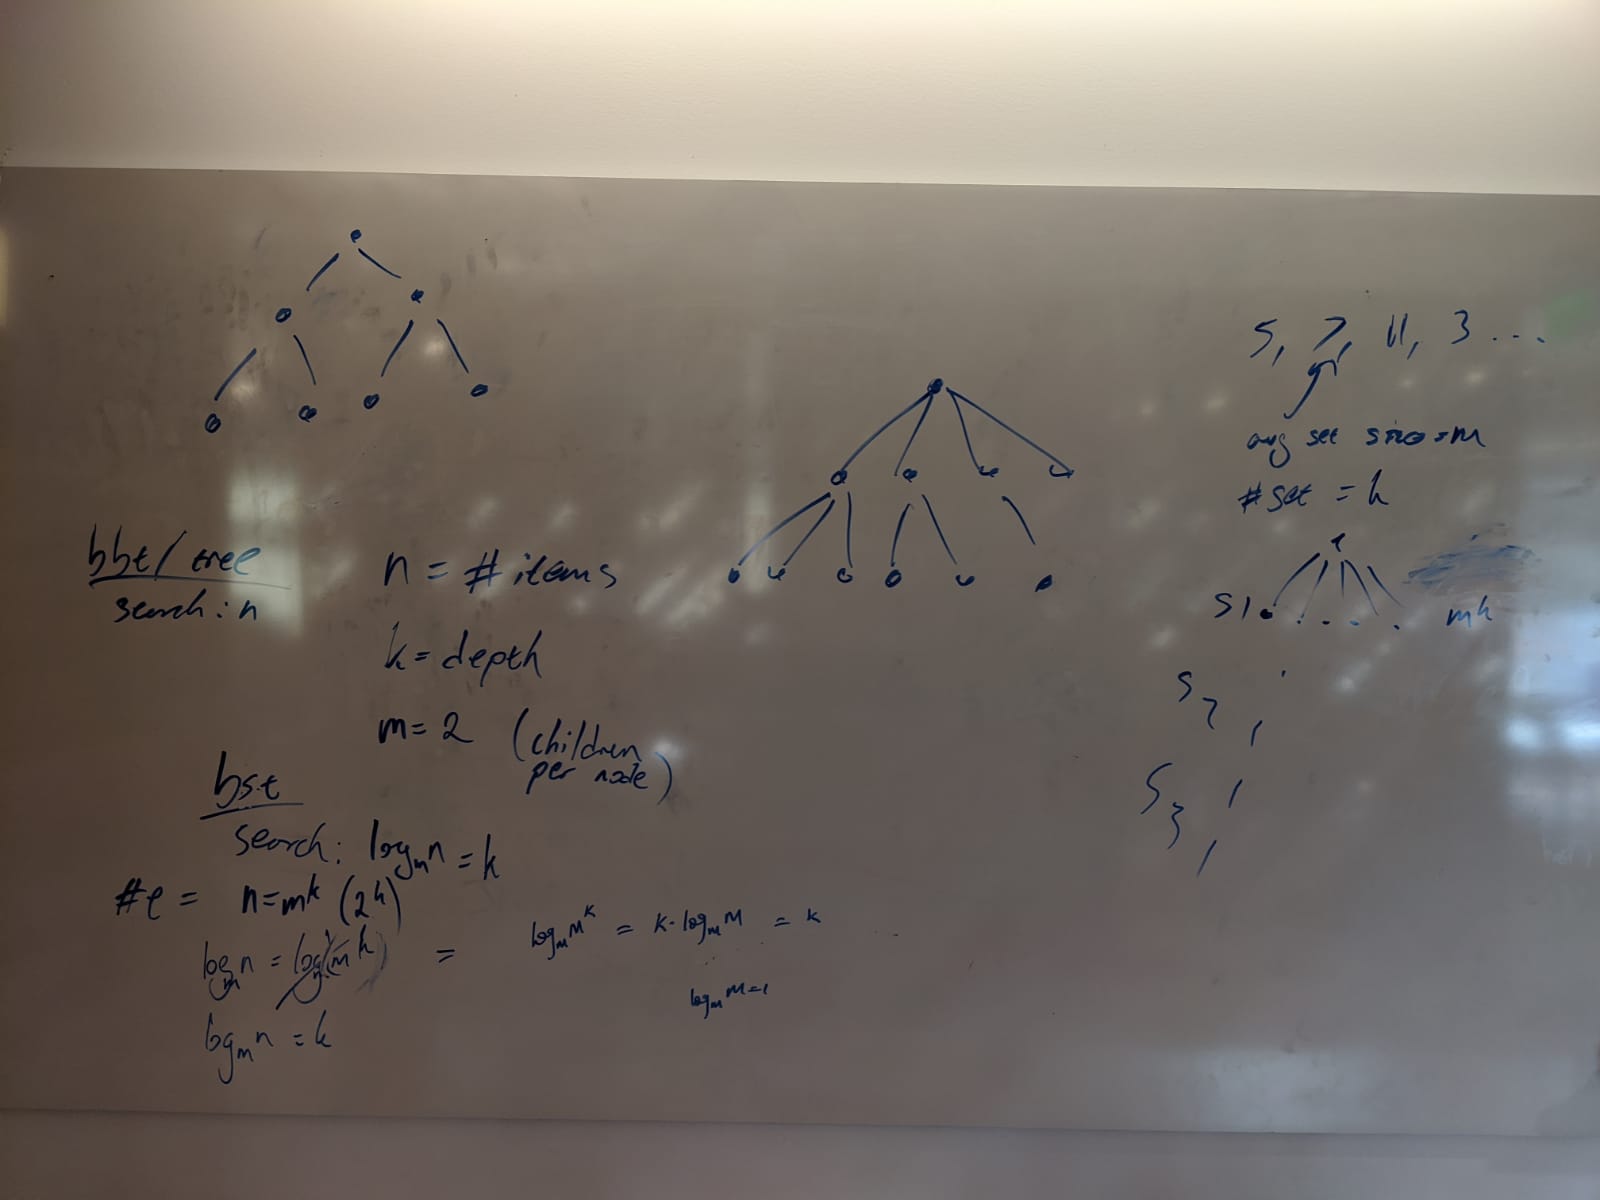 bbt/tree
search: n
n = # items
k = depth
m = 2 (children
per node)
bst
search: log_m n = k
#e = n = m^k (2^k)
log_m n = log_m(m^k) = log_m m^k = k · log_m m = k
log_m m = 1
log_m n = k
5, 7, 11, 3 ...
avg set size = m
#set = k
S1 mk
S2
S3